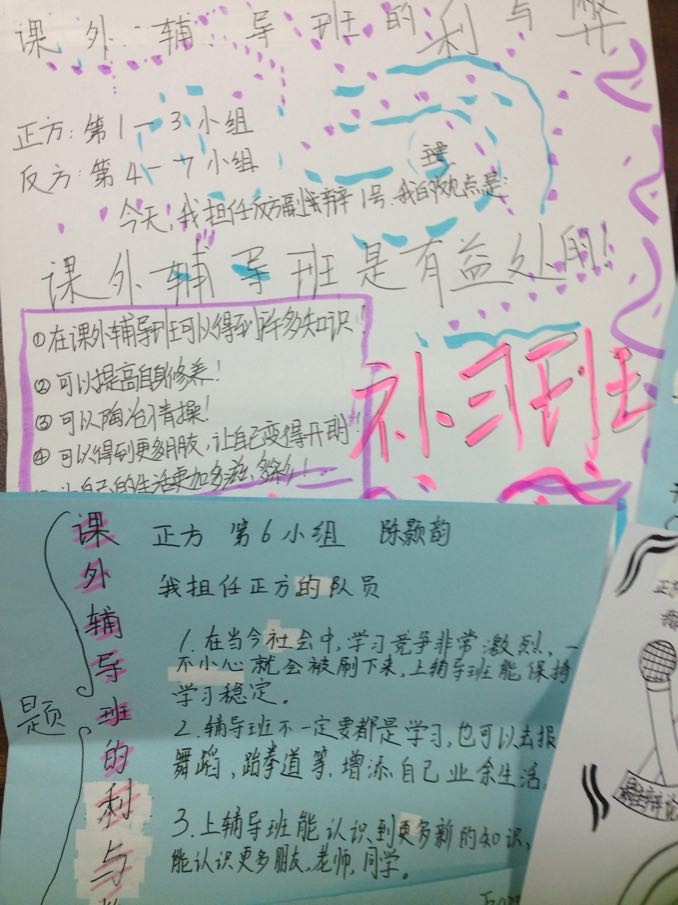 课外辅导班的利与弊
正方:第1-3小组
反方:第4-7小组
今天,我担任反方副辩1号.我的观点是:
课外辅导班是有益处的!
①在课外辅导班可以得到许多知识!
②可以提高自身修养!
③可以陶冶情操!
④可以得到更多朋友,让自己变得开朗!
让自己的生活更加多滋多彩!
补习班
题
课外辅导班的利与
正方 第6小组 陈颢韵
我担任正方的队员
1.在当今社会中,学习竞争非常激烈,一
不小心就会被刷下来,上辅导班能保持
学习稳定。
2.辅导班不一定要都是学习,也可以去报
舞蹈、跆拳道等,增添自己业余生活
3.上辅导班能认识到更多新的知识,
能认识更多朋友,老师,同学。
正方
辩论